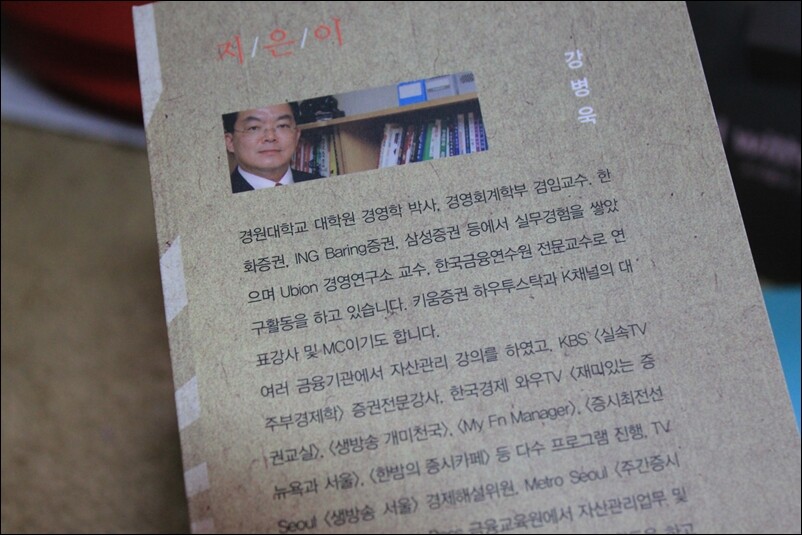 지/은/이
강병욱
경원대학교 대학원 경영학 박사, 경영회계학부 겸임교수. 한
화증권, ING Baring증권, 삼성증권 등에서 실무경험을 쌓았
으며 Ubion 경영연구소 교수, 한국금융연수원 전문교수로 연
구활동을 하고 있습니다. 키움증권 하우투스탁과 K채널의 대
표강사 및 MC이기도 합니다.
여러 금융기관에서 자산관리 강의를 하였고, KBS 〈실속TV
주부경제학〉 증권전문강사, 한국경제 와우TV 〈재미있는 증
권교실〉, 〈생방송 개미천국〉, 〈My Fn Manager〉, 〈증시최전선
뉴욕과 서울〉, 〈한밤의 증시카페〉 등 다수 프로그램 진행, TV
Seoul 〈생방송 서울〉 경제해설위원, Metro Seoul 〈주간증시
금융교육원에서 자산관리업무 및